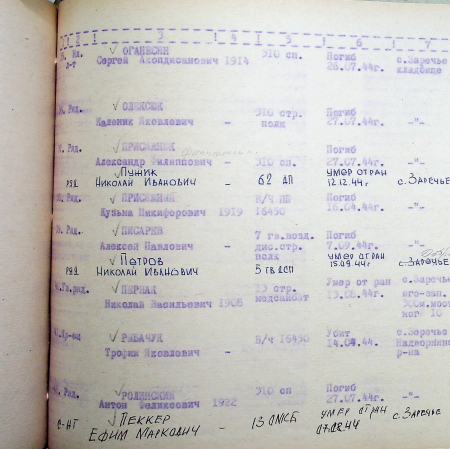 3 4 5 6 7
Мл. ОГАНЕСЯН 310 сп. Погиб с.Заречье
л-т Сергей Акопдисанович 1914 26.07.44г. кладбище
Ряд. ОЛЕКСЮК 310 стр. Погиб
Каленик Яковлевич - полк 27.07.44г. -"-
Ряд. ПРИСЯЖНЮК Погиб
Александр Филиппович - 310 сп. 27.07.44г. -"-
ПУЖИК УМЕР ОТ РАН
РЯД НИКОЛАЙ ИВАНОВИЧ - 62 АП 12.12.44г. С. ЗАРЕЧЬЕ
Ряд. ПРИСЯЖНЮК В/ч ПП Погиб
Кузьма Никифорович 1919 16450 16.04.44г. -"-
Ряд. ПИСАРЕВ 7 гв.возд. Погиб
Алексей Павлович - дис.стр. 7.09.44г. -"-
полк
ПЕТРОВ УМЕР ОТ РАН
РЯД НИКОЛАЙ ИВАНОВИЧ - 5 ГВ ДСП 15.09.44г. С. ЗАРЕЧЬЕ
Гв.ряд. ПЕРНАК 13 стр. Умер от ран с.Заречье
Николай Васильевич 1908 медсанбат 13.08.44г.
РЫБАЧУК В/ч 16450 Убит с.Заречье
Трофим Яковлевич - 14.04.44г. Надворнянс.
р-на
Ряд. РОЛИНСКИЙ 310 сп Погиб
Антон Феликсович 1922 27.07.44г. -"-
С-НТ ПЕККЕР УМЕР ОТ РАН
ЕФИМ МАРКОВИЧ - 13 ОМСБ 07.08.44 С. ЗАРЕЧЬЕ